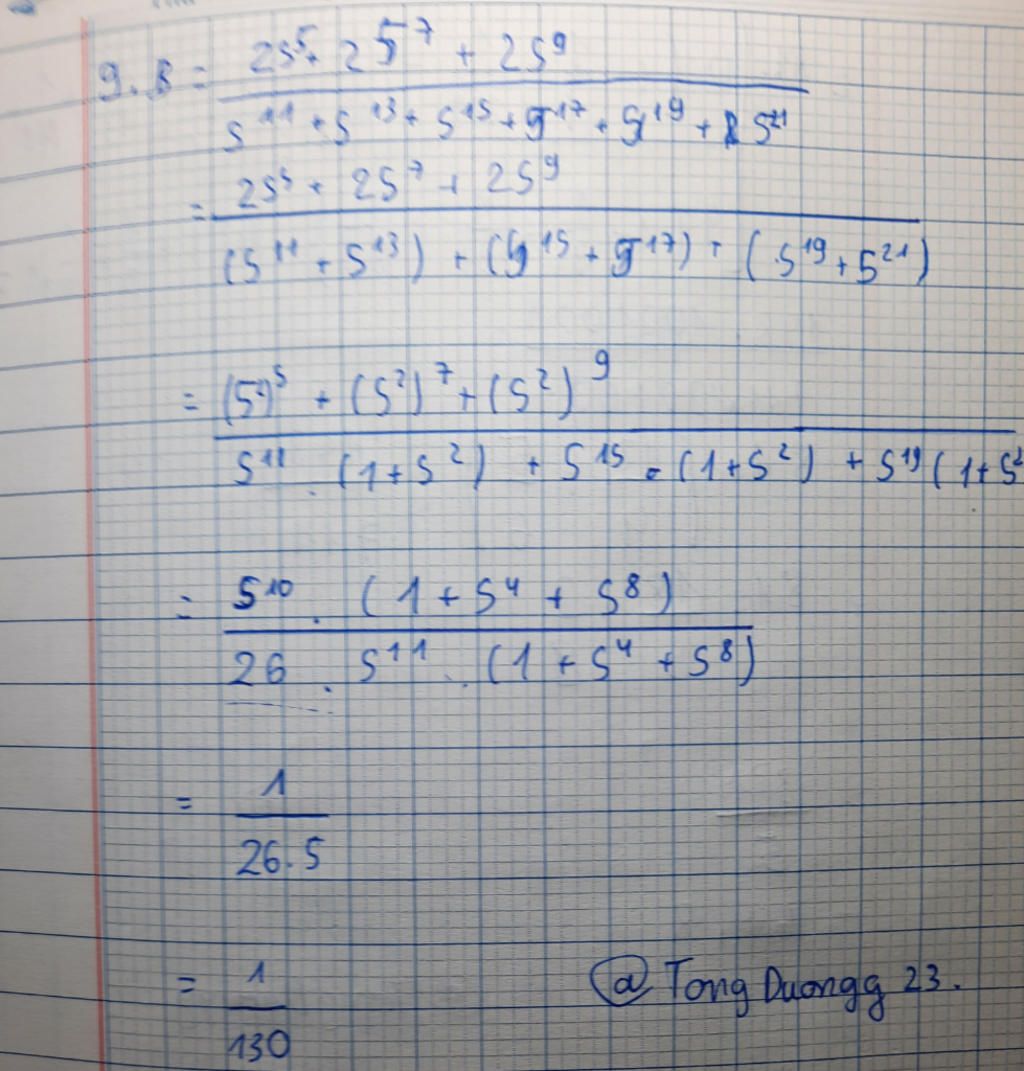 9. B = (25⁵ + 25⁷ + 25⁹) / (5¹¹ + 5¹³ + 5¹⁵ + 5¹⁷ + 5¹⁹ + 5²¹)
= (25⁵ + 25⁷ + 25⁹) / ((5¹¹ + 5¹³) + (5¹⁵ + 5¹⁷) + (5¹⁹ + 5²¹))
= ((5²)⁵ + (5²)⁷ + (5²)⁹) / (5¹¹ . (1 + 5²) + 5¹⁵ . (1 + 5²) + 5¹⁹ (1 + 5²
= (5¹⁰ . (1 + 5⁴ + 5⁸)) / (26 . 5¹¹ . (1 + 5⁴ + 5⁸))
= 1 / (26.5)
= 1 / 130
@ Tong Duongg 23.